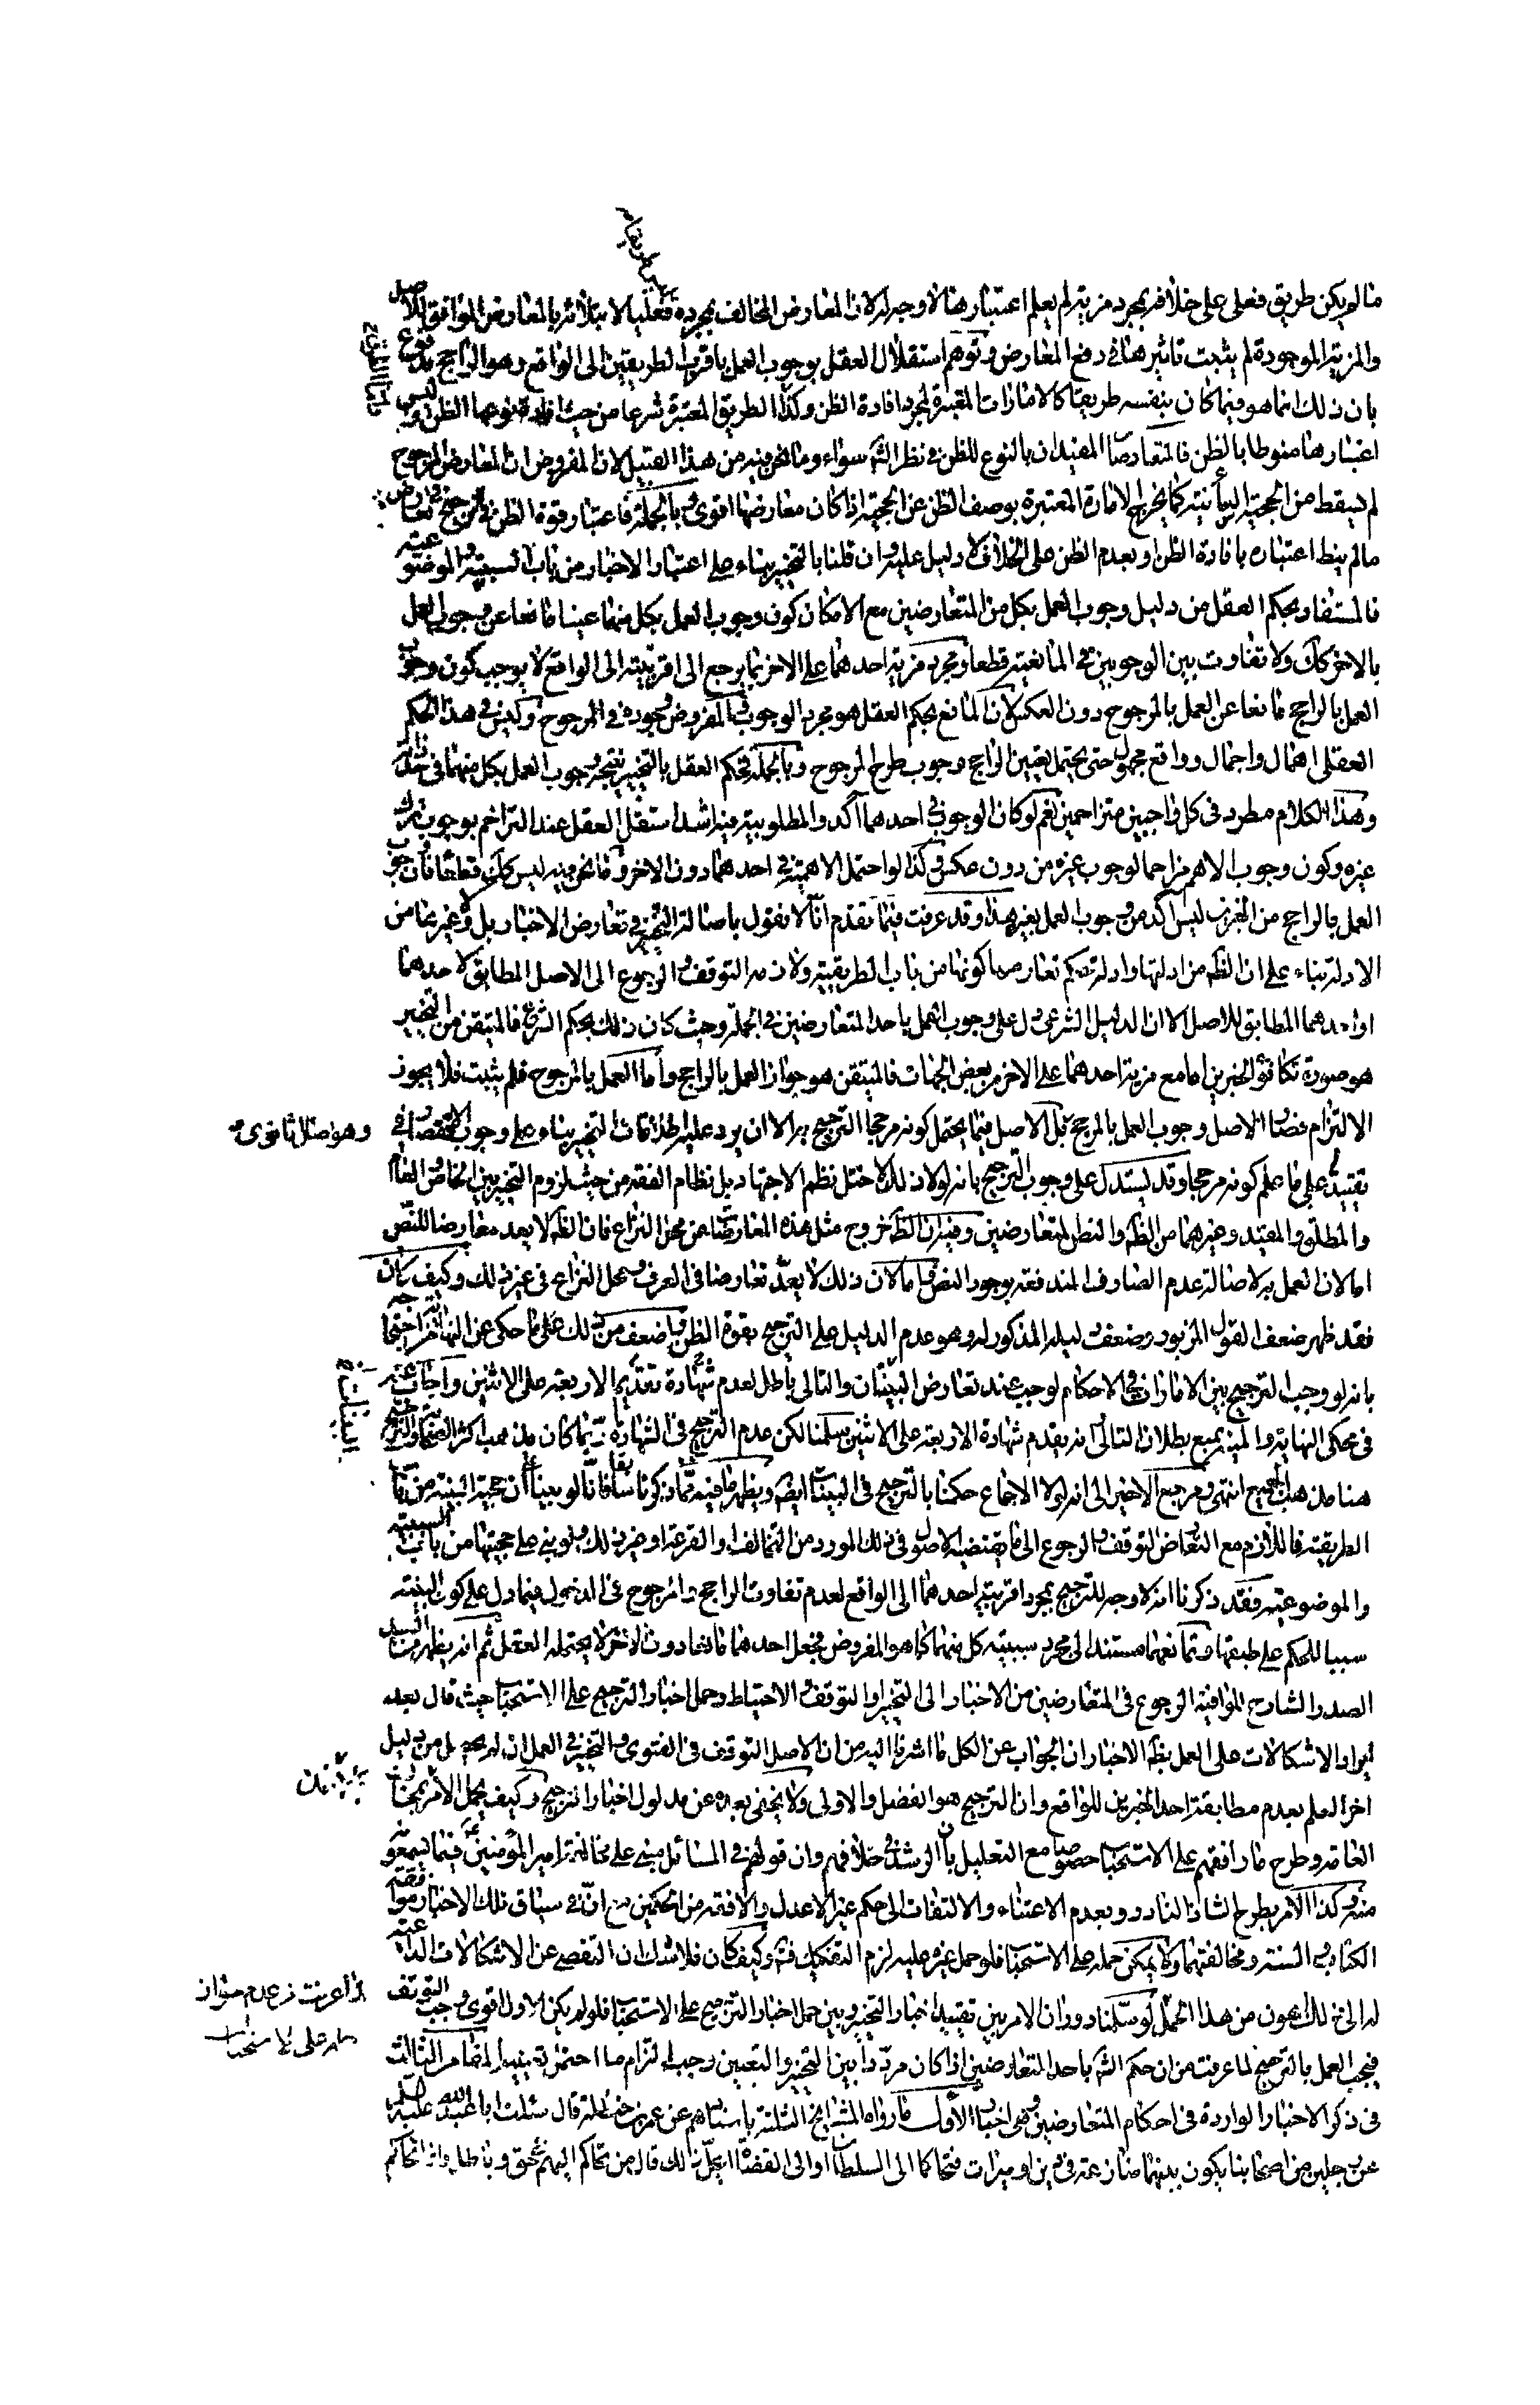 ما لم يكن طريق فعلي على خلافه بمجرد مزية لم يعلم اعتبارها لا وجه له لان المعارض المخالف بمجرده فعلي لابتلائه بالمعارض الموافق للاصل
والمزية الموجودة لم يثبت تاثيرها في دفع المعارض وتوهم استقلال العقل بوجوب العمل باقرب الطريقين الى الواقع وهو الراجح مدفوع
بان ذلك انما هو فيما كان بنفسه طريقا كالامارات المعتبرة لمجرد افادة الظن وكذا الطريق المعتبرة شرعا من حيث افادة نوعها الظن وليس
اعتبارها منوطا بالظن فالمتعارضان المفيدان بالنوع للظن في نظر الشه سواء وما نحن فيه من هذا القبيل لان المفروض ان المعارض المرجوح
لم يسقط من الحجية الشانية كما يخرج الامارة المعتبرة بوصف الظن عن الحجية اذا كان معارضها اقوى وبالجملة فاعتبار قوة الظن في الترجيح في تعارض
ما لم ينط اعتباره بافادة الظن او بعدم الظن على الخلاف لا دليل عليه وان قلنا بالتخيير بناء على اعتبار الاخبار من باب السببية والموضوعية
فالمستفاد بحكم العقل من دليل وجوب العمل بكل من المتعارضين مع الامكان كون وجوب العمل بكل منهما عينا مانعا عن وجوب العمل
بالاخر كك ولا تفاوت بين الوجوبين في المانعية قطعا ومجرد مزية احدهما على الاخر بما يرجع الى اقربيته الى الواقع لا يوجب كون وجوب
العمل بالراجح مانعا عن العمل بالمرجوح دون العكس لان المانع بحكم العقل هو مجرد الوجوب والمفروض وجوده في المرجوح وليس في هذا الحكم
العقلي اهمال واجمال وواقع مجهول حتى يحتمل تعيين الراجح ووجوب طرح المرجوح وبالجملة فحكم العقل بالتخيير نتيجة وجوب العمل بكل منهما في حد ذاته
وهذا الكلام مطرد في كل واجبين متزاحمين نعم لو كان الوجوب في احدهما آكد والمطلوبية فيه اشد استقل العقل عند التزاحم بوجوب ترك
غيره وكون وجوب الاهم مزاحما لوجوب غيره من دون عكس وكذا لو احتمل الاهمية في احدهما دون الاخر وما نحن فيه ليس كك قطعا فان وجوب
العمل بالراجح من الخبرين ليس آكد من وجوب العمل بغيره هذا وقد عرفت فيما تقدم انا لا نقول باصالة التخيير في تعارض الاخبار بل ولا غيرها من
الادلة بناء على ان الظه من ادلتها وادلة حكم تعارضها كونها من باب الطريقية ولازمه التوقف والرجوع الى الاصل المطابق لاحدهما
او احدهما المطابق للاصل الا ان الدليل الشرعي دل على وجوب العمل باحد المتعارضين في الجملة وحيث كان ذلك بحكم الشرع فالمتيقن من التخيير
هو صورة تكافؤ الخبرين اما مع مزية احدهما على الاخر من بعض الجهات فالمتيقن هو جواز العمل بالراجح واما العمل بالمرجوح فلم يثبت فلا يجوز
الالتزام فصار الاصل وجوب العمل بالمرجح بل الاصل فيما يحتمل كونه مرجحا الترجيح به الا ان يرد عليه اطلاقات التخيير بناء على وجوب الاقتصار في
وهو اصل ثانوي
تقييدها على ما علم كونه مرجحا وقد يستدل على وجوب الترجيح بانه لولا ذلك لاختل نظم الاجتهاد بل نظام الفقه من حيث لزوم التخيير بين الخاص والعام
والمطلق والمقيد وغيرهما من الظه والنص المتعارضين وفيه ان الظه خروج مثل هذه المعارضات عن محل النزاع فان الظه لا يعد معارضا للنص
اما لان العمل به لاصالة عدم الصارف المندفعة بوجود النص واما لان ذلك لا يعد تعارضا في العرف ومحل النزاع في غير ذلك وكيف كان
فقد ظهر ضعف القول المزبور وضعف دليله المذكور له وهو عدم الدليل على الترجيح بقوة الظن واضعف من ذلك ما حكي عن النهاية من احتجاجه
بانه لو وجب الترجيح بين الامارات في الاحكام لوجب عند تعارض البينات والتالي باطل لعدم تقديم شهادة الاربعة على الاثنين واجاب عنه
في محكي النهاية والمنية بمنع بطلان التالي وانه يقدم شهادة الاربعة على الاثنين سلمنا لكن عدم الترجيح في الشهادة ربما كان مذهب اكثر الصحابة والترجيح
هنا مذهب الجميع انتهى ومرجع الاخير الى انه لولا الاجماع حكمنا بالترجيح في البينات ايضا ويظهر ما فيه مما ذكرنا سابقا فانا لو بنينا على ان حجية البينة من باب
الطريقية فاللازم مع التعارض التوقف والرجوع الى ما يقتضيه الاصول في ذلك المورد من التحالف او القرعة او غير ذلك ولو بني على حجيتها من باب السببية
والموضوعية فقد ذكرنا انه لا وجه للترجيح بمجرد اقربية احدهما الى الواقع لعدم تفاوت الراجح والمرجوح في الدخول فيما دل على كون البينة
سببا للحكم على طبقها وتمانعهما مستند الى مجرد سببية كل منهما كما هو المفروض فجعل احدهما مانعا دون الاخر لا يحتمله العقل ثم انه يظهر من السيد
الصدر الشارح للوافية الرجوع في المتعارضين من الاخبار الى التخيير او التوقف والاحتياط وحمل اخبار الترجيح على الاستحباب حيث قال بعد
ايراد الاشكالات على العمل بظه الاخبار ان الجواب عن الكل ما اشرنا اليه من ان الاصل التوقف في الفتوى والتخيير في العمل ان لم يحصل من دليل
اخر العلم بعدم مطابقة احد الخبرين للواقع وان الترجيح هو الفضل والاولى ولا يخفى بعده عن مدلول اخبار الترجيح وكيف يحمل الامر بالاخذ بما خالف
العامة وطرح ما وافقهم على الاستحباب خصوصا مع التعليل بان الرشد في خلافهم وان قولهم في المسائل مبني على مخالفة امير المؤمنين فيما يسمعونه
منه وكذا الامر بطرح الشاذ النادر وبعدم الاعتناء والالتفات الى حكم غير الاعدل والافقه من الحكمين مع ان في سياق تلك الاخبار موافقة
الكتاب والسنة ومخالفتهما ولا يمكن حمله على الاستحباب فلو حمل غيره عليه لزم التفكيك فته وكيف كان فلا شك ان التفصي عن الاشكالات الداعية
له الى ذلك اهون من هذا الحمل لو سلمنا دوران الامر بين تقييد اخبار التخيير وبين حمل اخبار الترجيح على الاستحباب فلو لم يكن الاول اقوى وجب التوقف
فيجب العمل بالترجيح لما عرفت من ان حكم الشه باحد المتعارضين اذا كان مرددا بين التخيير والتعيين وجب التزام ما احتمل تعيينه المقام الثالث
في ذكر الاخبار الواردة في احكام المتعارضين وهي اخبار الاول ما رواه المشايخ الثلثة باسنادهم عن عمر بن حنظلة قال سئلت ابا عبد الله عليه
عن رجلين من اصحابنا يكون بينهما منازعة في دين او ميراث فتحاكما الى السلطان او الى القضاة ايحل ذلك قال من تحاكم اليهم في حق او باطل فانما تحاكم